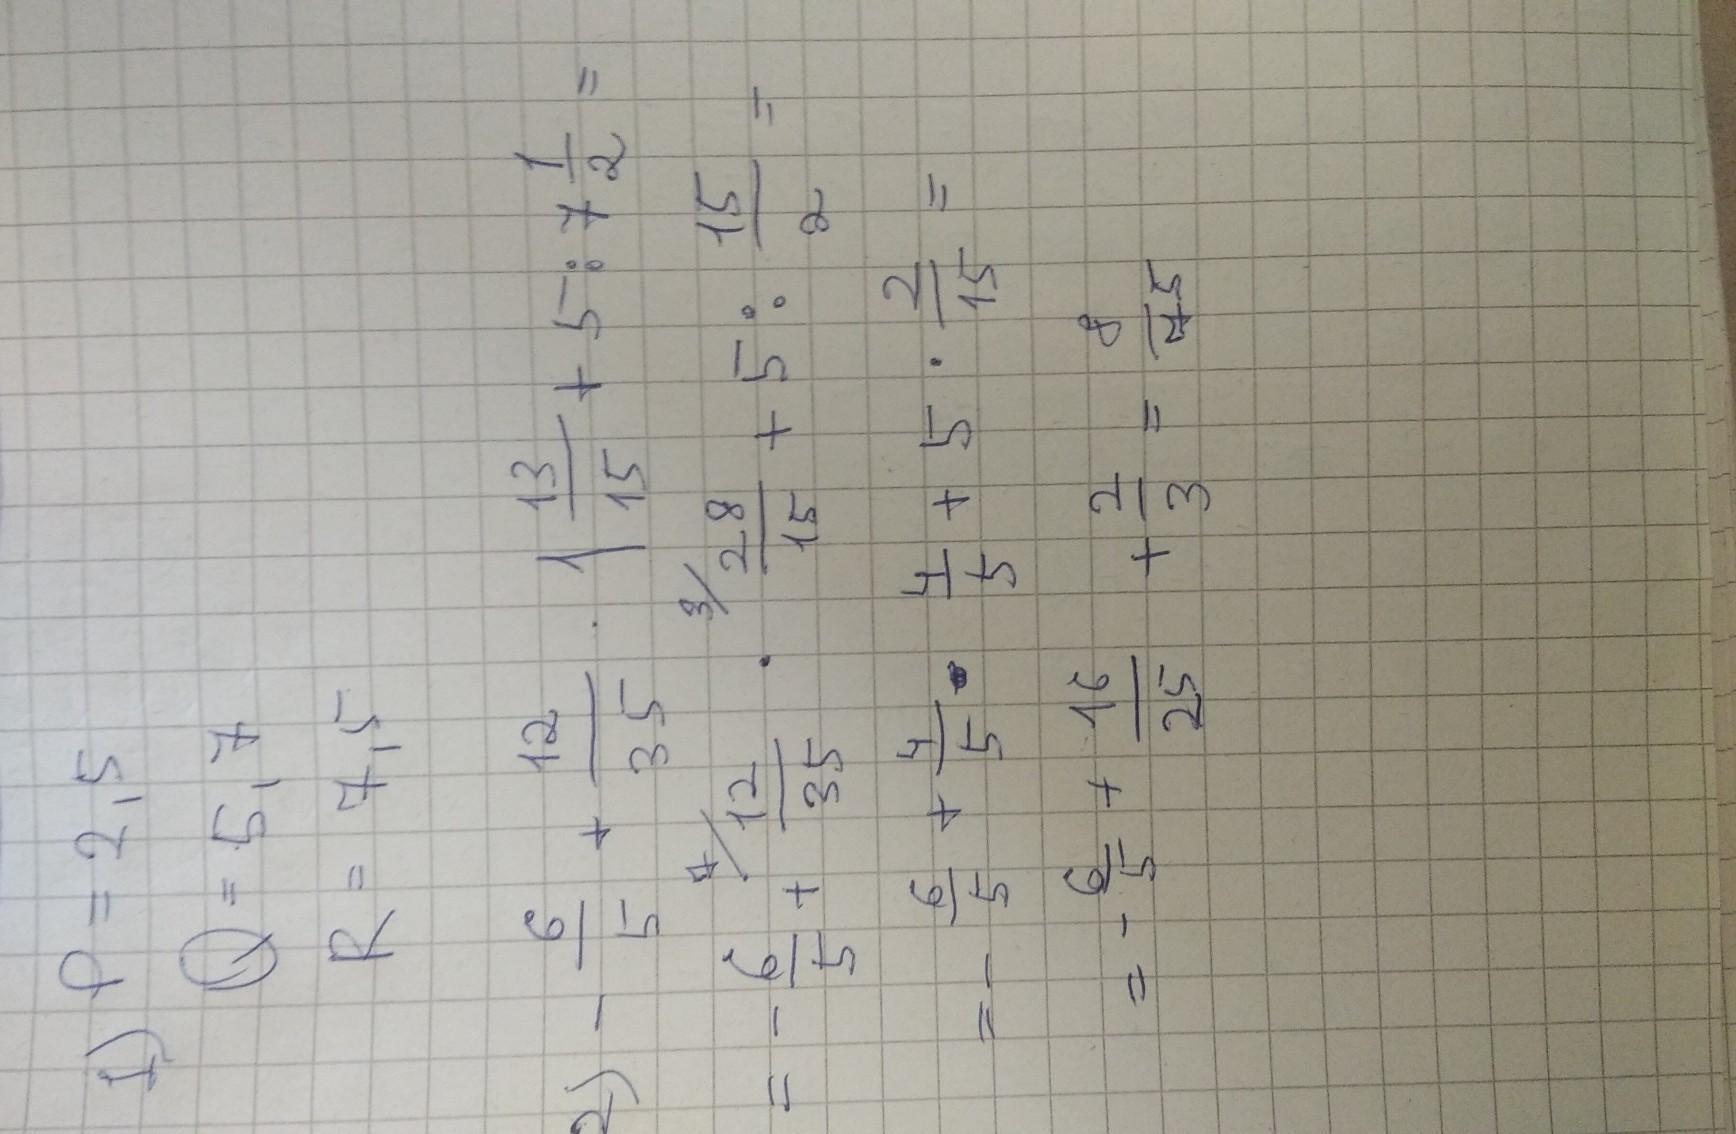 1) P = 2,5
Q = 5,7
R = 7,5
2) - 6/5 + 12/35 · 1 13/15 + 5 : 7 1/2 =
= - 6/5 + 4/ 12/35 · 3/ 28/15 + 5 : 15/2 =
= - 6/5 + 4/5 · 4/5 + 5 · 2/15 =
= - 6/5 + 16/25 + 2/3 = 8/75